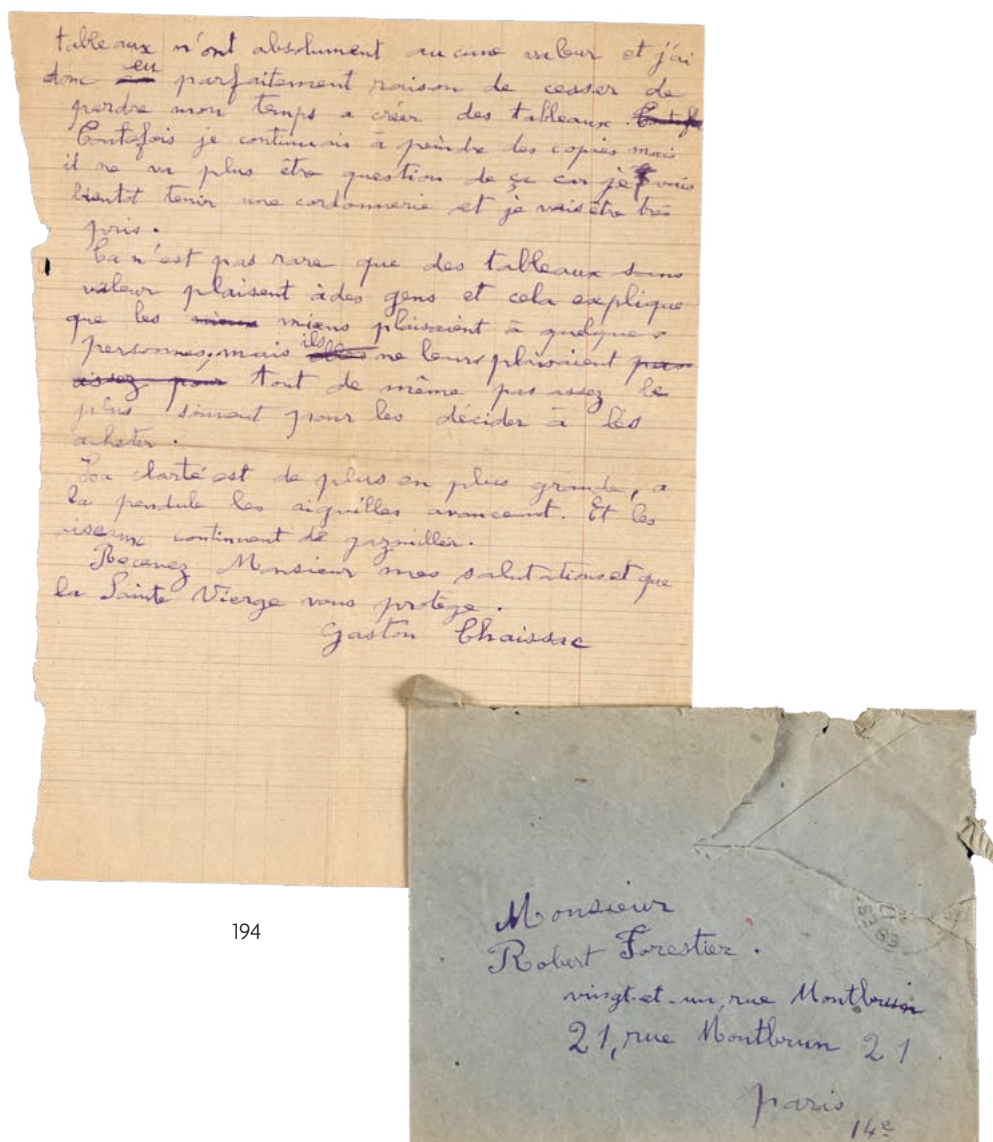 tableaux n'ont absolument aucune valeur et j'ai
donc eu parfaitement raison de cesser de
perdre mon temps a créer des tableaux.
Toutefois je continuais à peindre des copies mais
il ne va plus être question de ça car je vais
bientot tenir une cordonnerie et je vais être très
pris.
Ca n'est pas rare que des tableaux sans
valeur plaisent à des gens et cela explique
que les miens plaisaient à quelques
personnes, mais ils ne leurs plaisaient pas
assez pour tout de même pas assez le
plus souvent pour les décider à les
acheter.
La clarté est de plus en plus grande, a
la pendule les aiguilles avancent. Et les
oiseaux continuent de gazouiller.
Recevez Monsieur mes salutations et que
la Sainte Vierge vous protège.
Gaston Chaissac
194
Monsieur
Robert Forestier.
vingt-et-un, rue Montbrun
21, rue Montbrun 21
paris
14e